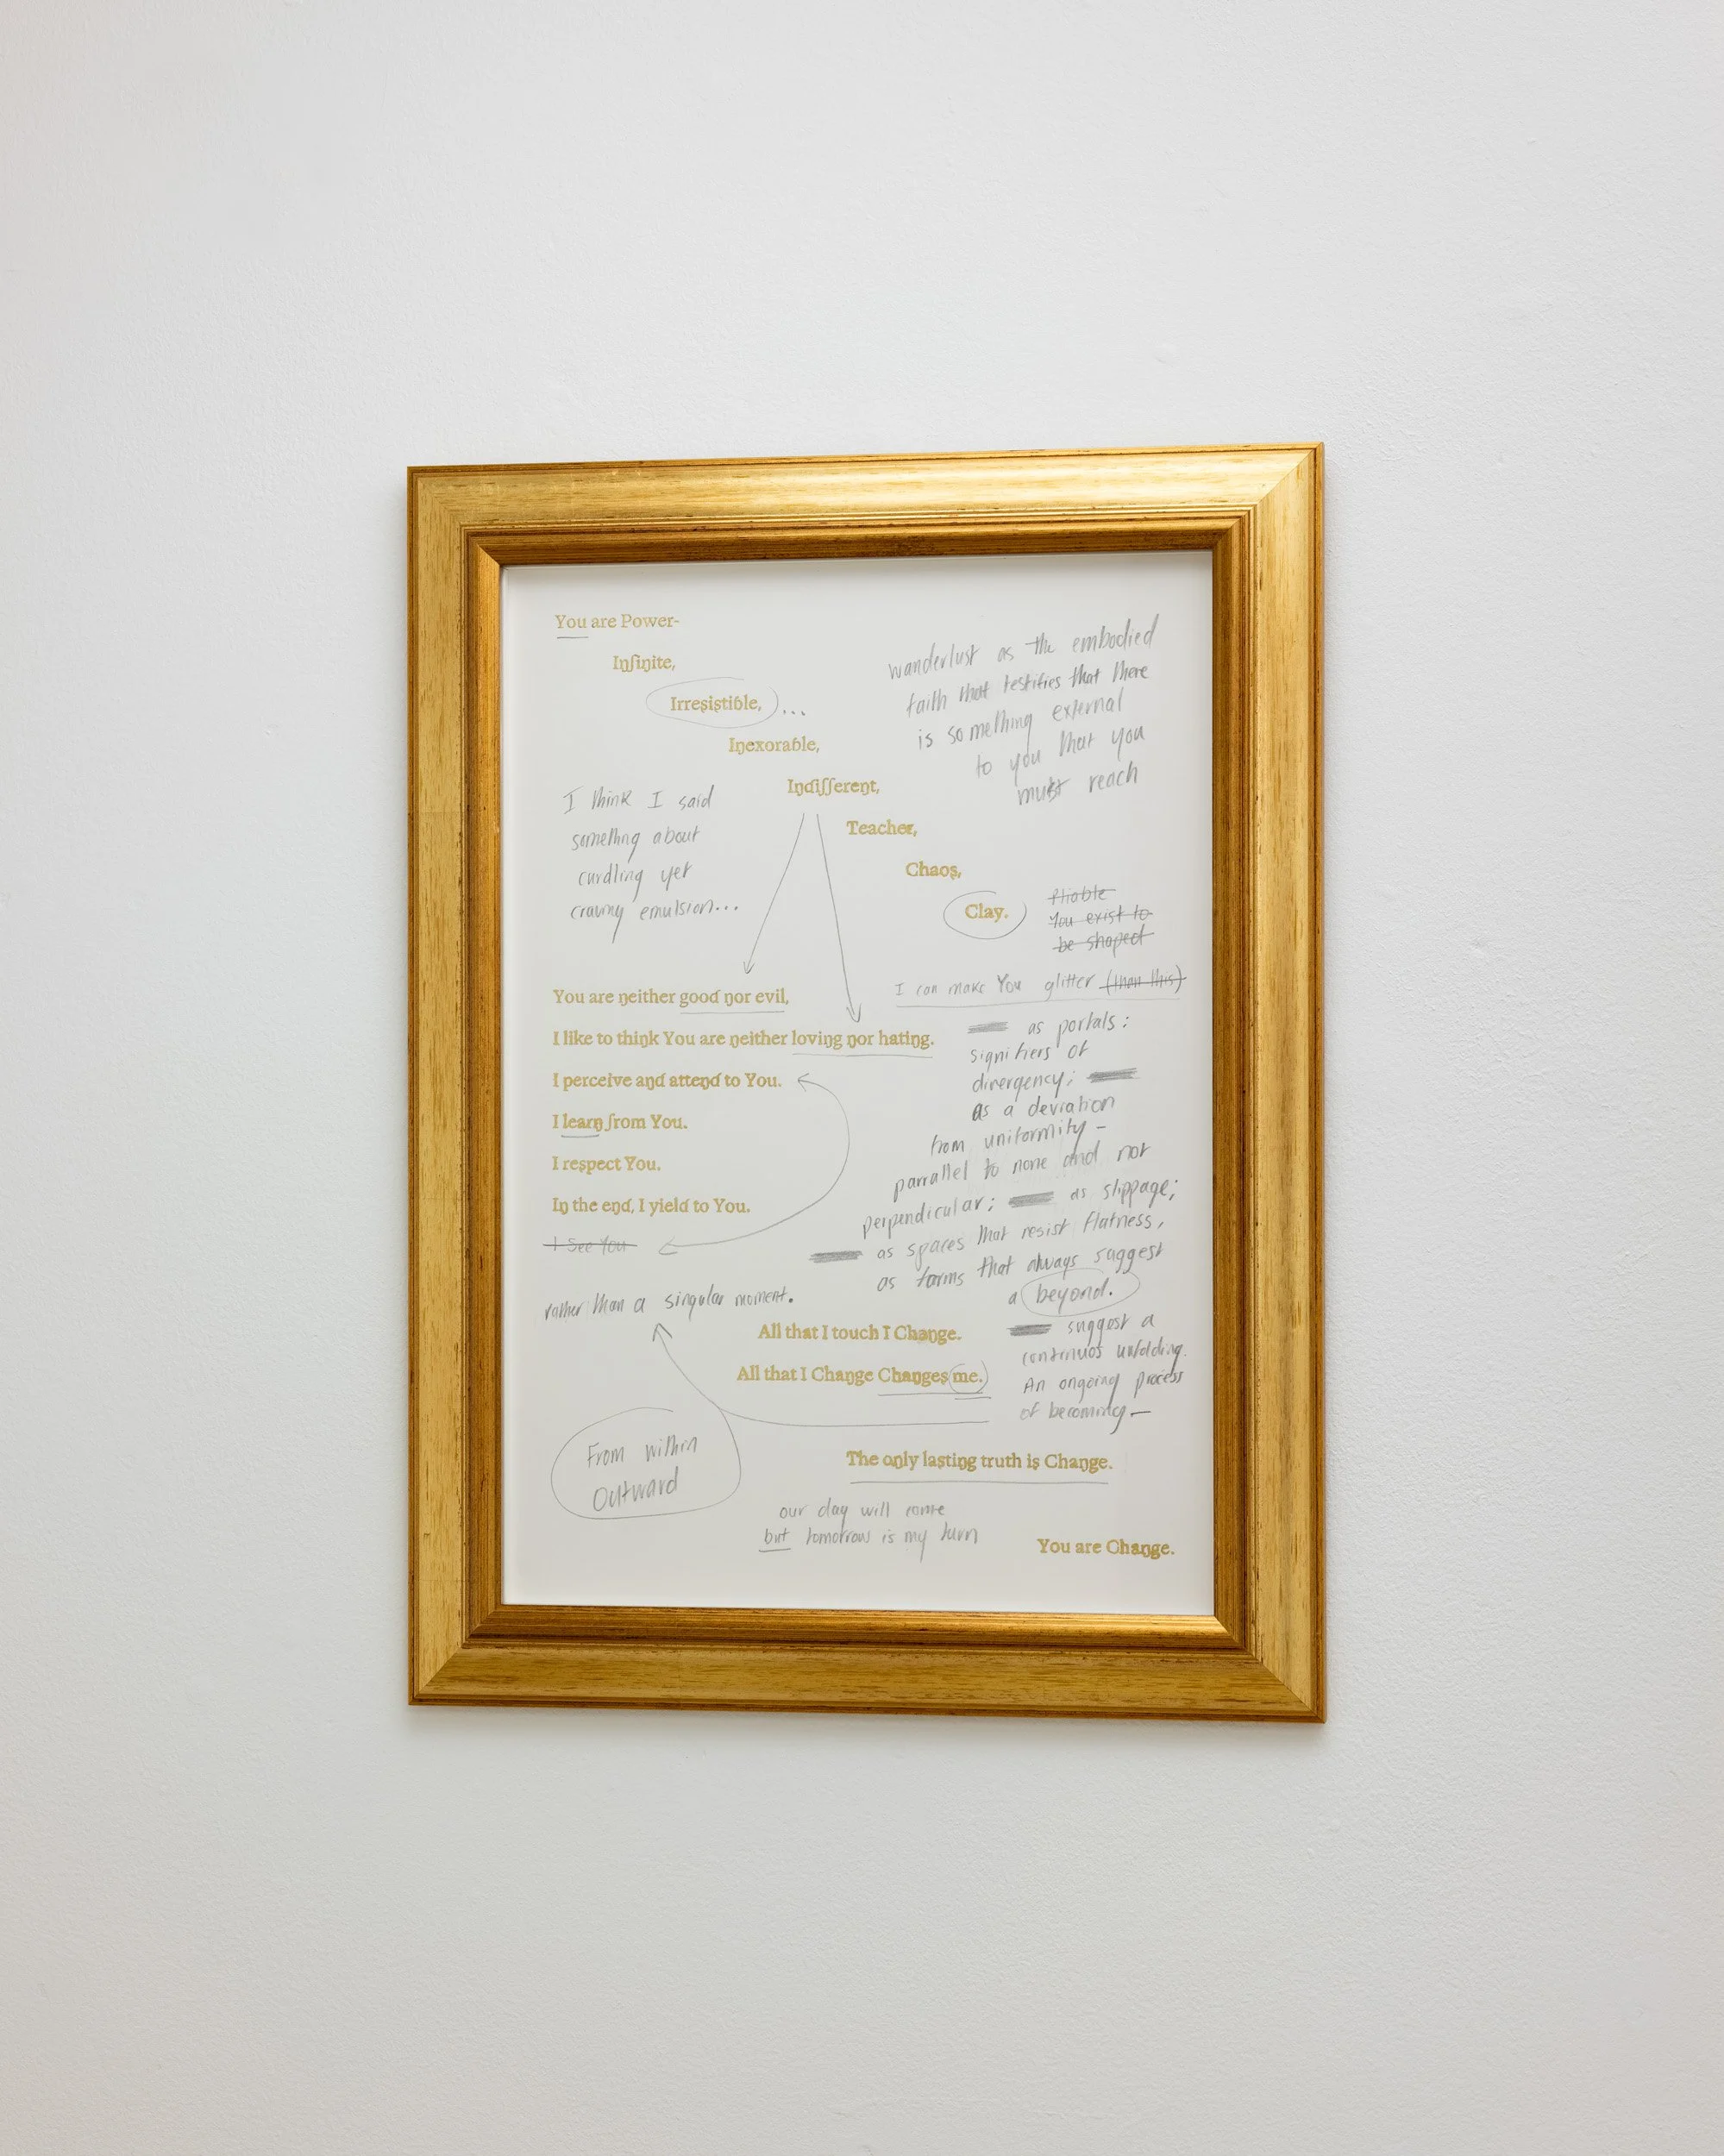 You are Power-
Infinite,
Irresistible, ...
Inexorable,
Indifferent,
Teacher,
Chaos,
Clay.
wanderlust as the embodied
faith that testifies that there
is something external
to you that you
must reach
I think I said
something about
curdling yet
craving emulsion...
Pliable
You exist to
be shaped
I can make You glitter (than this)
You are neither good nor evil,
I like to think You are neither loving nor hating.
I perceive and attend to You.
I learn from You.
I respect You.
In the end, I yield to You.
I See You
rather than a singular moment.
as portals:
signifiers of
divergency;
as a deviation
from uniformity -
parrallel to none and not
perpendicular; as slippage;
as spaces that resist flatness,
as forms that always suggest
a beyond.
suggest a
continuos unfolding.
An ongoing process
of becoming-
All that I touch I Change.
All that I Change Changes me.
From within
Outward
The only lasting truth is Change.
our day will come
but tomorrow is my turn
You are Change.